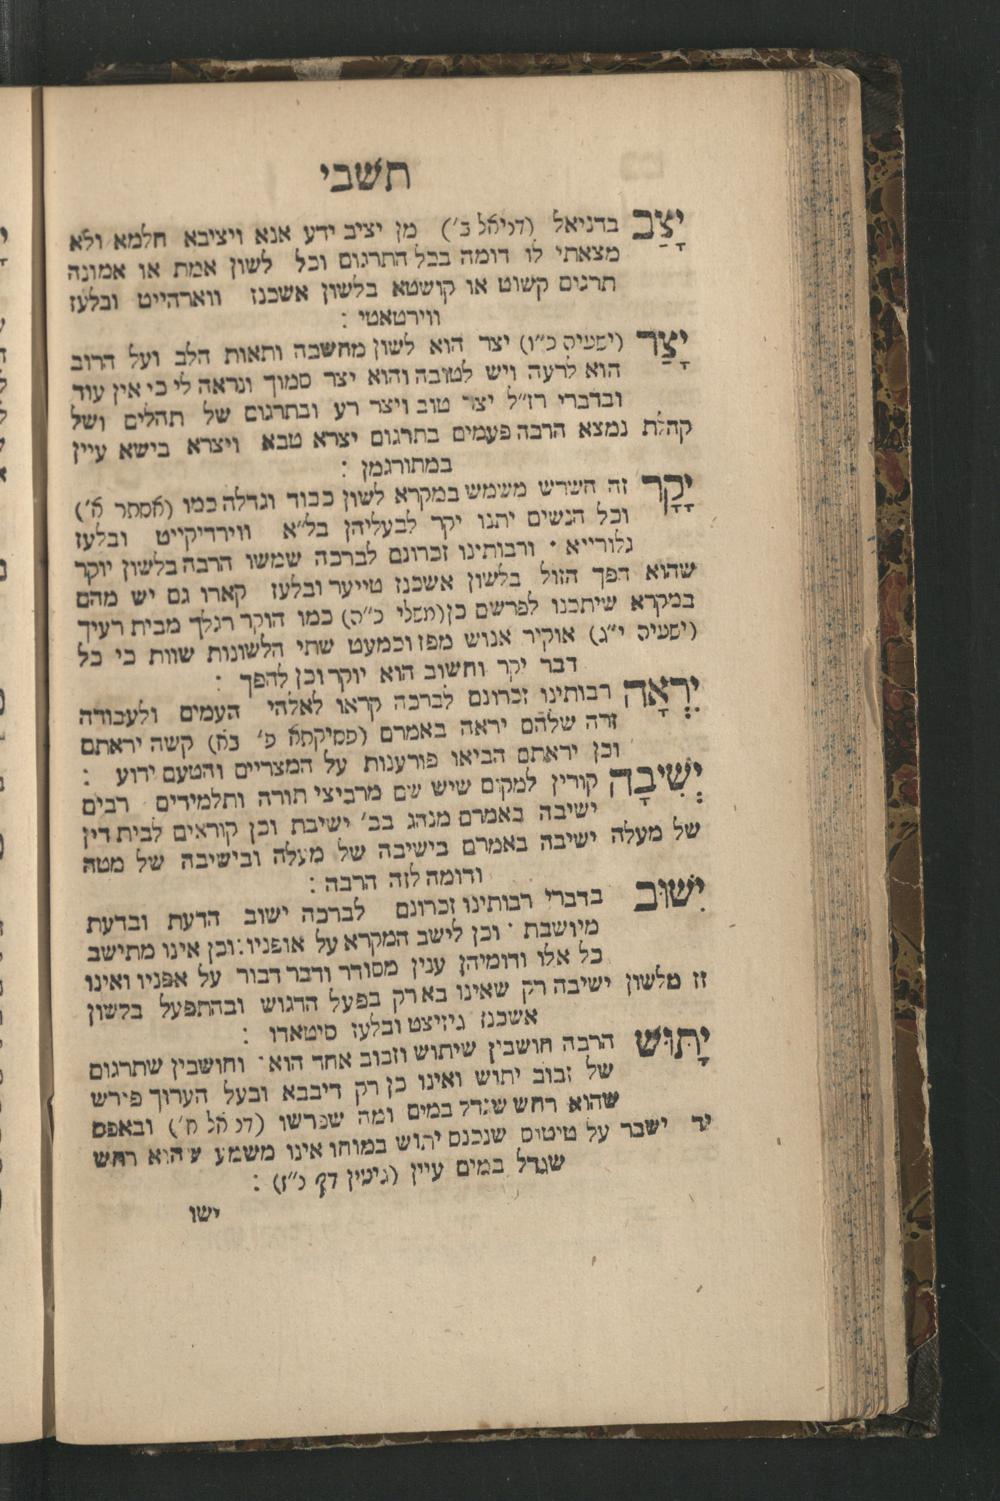 תשבי
יָצַב בדניאל (דניאל ב׳) מן יציב ידע אנא ויציבא חלמא ולא
מצאתי לו דומה בכל התרגום וכל לשון אמת או אמונה
תרגום קשוט או קושטא בלשון אשכנז ווארהייט ובלעז
ווירטאטי :
יָצַר (ישעיה כ״ו) יצר הוא לשון מחשבה ותאות הלב ועל הרוב
הוא לרעה ויש לטובה והוא יצר סמוך ונראה לי כי אין עוד
ובדברי רז״ל יצר טוב ויצר רע ובתרגום של תהלים ושל
קהלת נמצא הרבה פעמים בתרגום יצרא טבא ויצרא בישא עיין
במתורגמן :
יָקָר זה השרש משמש במקרא לשון כבוד וגדלה כמו (אסתר א׳)
וכל הנשים יתנו יקר לבעליהן בל״א ווירדיקייט ובלעז
גלורייא · ורבותינו זכרונם לברכה שמשו הרבה בלשון יוקר
שהוא הפך הזול בלשון אשכנז טייער ובלעז קארו גם יש מהם
במקרא שיתכנו לפרשם כן (משלי כ״ה) כמו הוקר רגלך מבית רעיך
(ישעיה י״ג) אוקיר אנוש מפז וכמעט שתי הלשונות שוות כי כל
דבר יקר וחשוב הוא יוקר וכן להפך :
יִרְאָה רבותינו זכרונם לברכה קראו לאלהי העמים ולעבודה
זרה שלהם יראה באמרם (פסיקתא פ׳ בא) קשה יראתם
וכן יראתם הביאו פורענות על המצריים והטעם ירוע :
יְשִׁיבָה קורין למקום שיש שם מרביצי תורה ותלמידים רבים
ישיבה באמרם מנהג בב׳ ישיבת וכן קוראים לבית דין
של מעלה ישיבה באמרם בישיבה של מעלה ובישיבה של מטה
ודומה לזה הרבה :
יִשׁוּב בדברי רבותינו זכרונם לברכה ישוב הדעת ובדעת
מיושבת · וכן לישב המקרא על אופניו : וכן אינו מתישב
כל אלו ודומיהן ענין מסודר ודבר דבור על אפניו ואינו
זז מלשון ישיבה רק שאינו בא רק בפעל הדגוש ובהתפעל בלשון
אשכנז גיזיצט ובלעז סיטאדו :
יַתּוּשׁ הרבה חושבין שיתוש וזבוב אחד הוא · וחושבין שתרגום
של זבוב יתוש ואינו כן רק דיבבא ובעל הערוך פירש
שהוא רחש שגדל במים ומה שפרשו (דניאל ח׳) ובאפס
יד ישבר על טיטוס שנכנס יתוש במוחו אינו משמע שהוא רחש
שגדל במים עיין (גיטין דף נ״ז) :
ישו